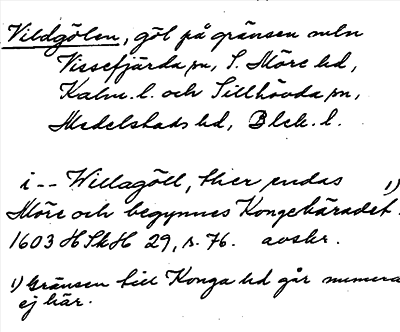 Vildgölen, göl på gränsen mln
Vissefjärda sn, S. Möre hd,
Kalm. l. och Sillhövda sn,
Medelstads hd, Blek. l.
i -- Willagöll, ther endas 1)
Möre och begynnes Kongehäradet.
1603 HSkH 29, s. 76. avskr.
1) Gränsen till Konga hd går numera
ej här.